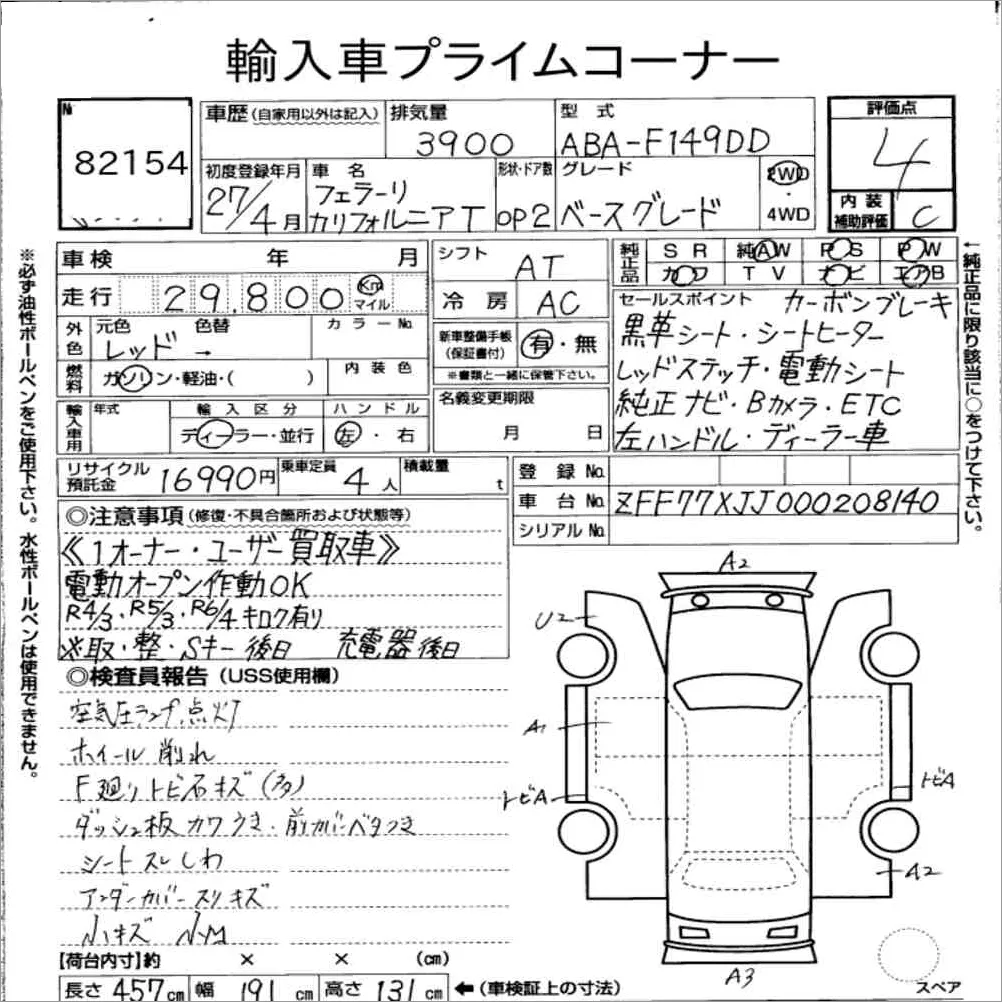 輸入車プライムコーナー
№
82154
車歴(自家用以外は記入)
排気量
3900
型 式
ABA-F149DD
評価点
4
初度登録年月
27/4月
車 名
フェラーリ
カリフォルニアT
形状・ドア数
OP2
グレード
ベースグレード
2WD
4WD
内装
補助評価
C
車検 年 月
走行 29,800 Km
マイル
外色
元色 色替
レッド →
カラーNo.
燃料
ガソリン・軽油・( )
内装色
輸入車用
年式
輸入区分
ディーラー・並行
ハンドル
左・右
シフト
AT
冷房
AC
新車整備手帳
(保証書付)
有・無
※書類と一緒に保管下さい。
名義変更期限
月 日
純正品
SR 純AW PS PW
カワ TV ナビ エアB
セールスポイント カーボンブレーキ
黒革シート・シートヒーター
レッドステッチ・電動シート
純正ナビ・Bカメラ・ETC
左ハンドル・ディーラー車
リサイクル
預託金
16990円
乗車定員
4人
積載量
t
登録No.
車台No. ZFF77XJJ000208140
シリアルNo.
◎注意事項(修復・不具合箇所および状態等)
《1オーナー・ユーザー買取車》
電動オープン作動OK
R4/3・R5/3・R6/4キロク有り
※取・整・Sキー後日 充電器後日
◎検査員報告(USS使用欄)
空気圧ランプ点灯
ホイール削れ
F廻りトビ石キズ(多)
ダッシュ板カワうき・前カバーベタつき
シートスレしわ
アンダーカバースリキズ
小キズ
A2
U2
A1
トビA
トビA
A2
A3
スペア
【荷台内寸】約 × × (cm)
長さ 457cm 幅 191cm 高さ 131cm ←(車検証上の寸法)
※必ず油性ボールペンをご使用下さい。水性ボールペンは使用できません。
←純正品に限り該当に○をつけて下さい。